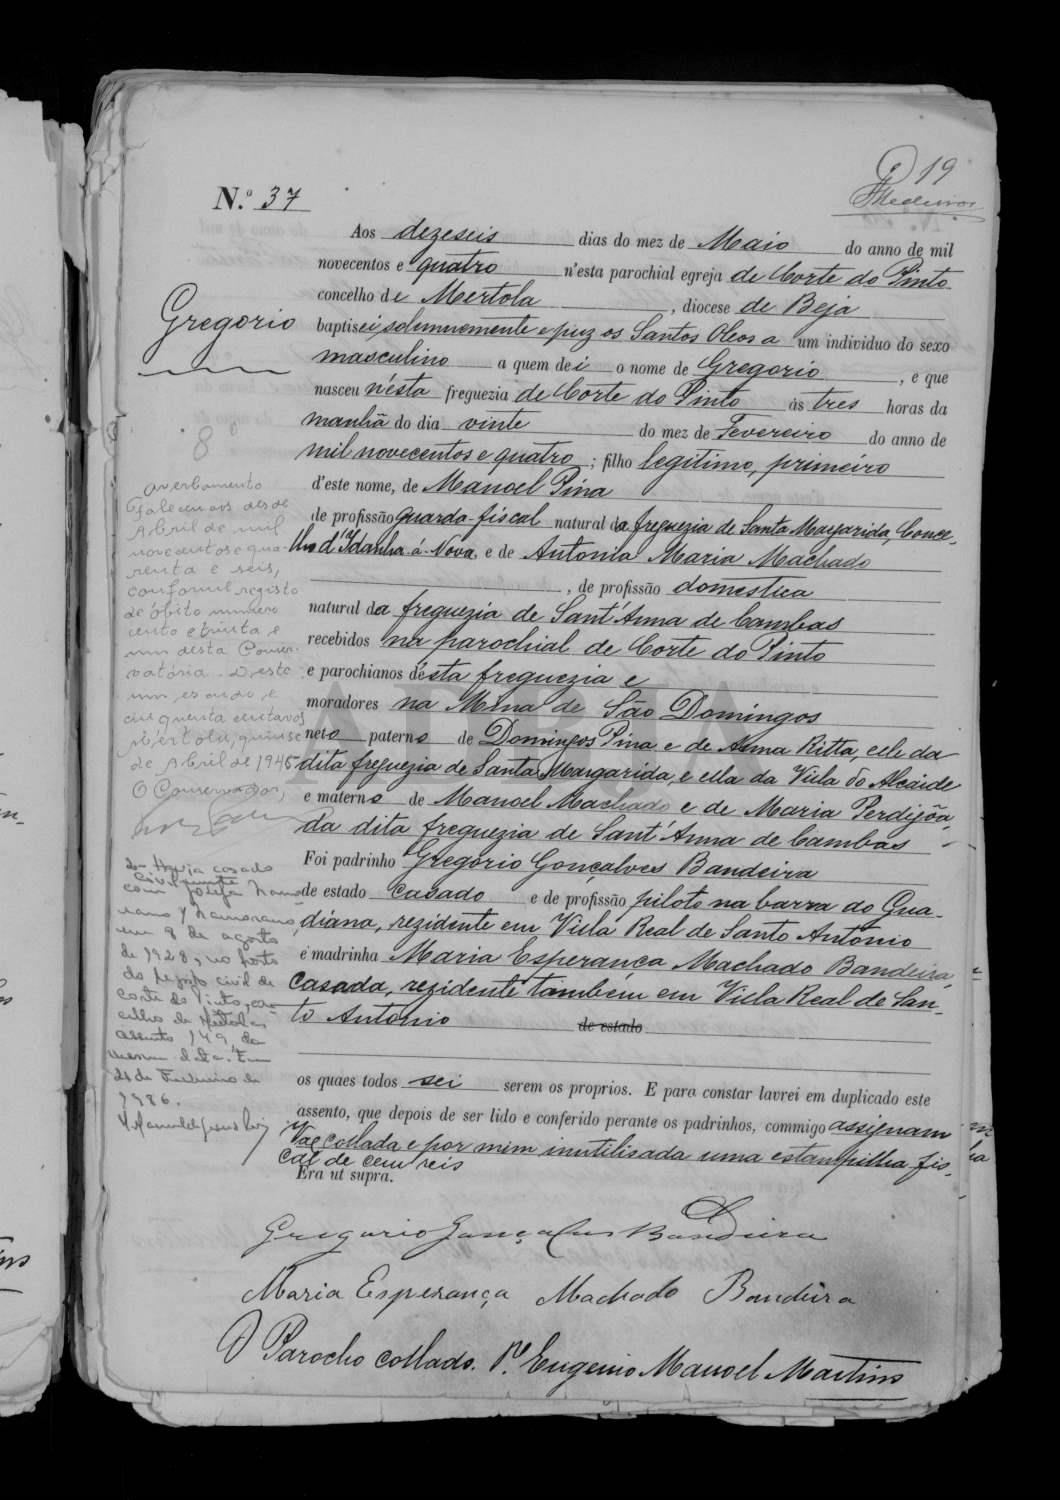 19
Medeiros
N.º 37
Gregorio
Aos dezeseis dias do mez de Maio do anno de mil
novecentos e quatro n'esta parochial egreja de Corte do Pinto
concelho de Mertola, diocese de Beja
baptisei solemnemente e puz os Santos Oleos a um individuo do sexo
masculino a quem dei o nome de Gregorio, e que
nasceu n'ésta freguezia de Corte do Pinto ás tres horas da
manhã do dia vinte do mez de Fevereiro do anno de
mil novecentos e quatro; filho legitimo, primeiro
d'este nome, de Manoel Pina
de profissão guarda-fiscal natural da freguezia de Santa Margarida, Conce-
lho d'Idanha-á-Nova, e de Antonia Maria Machado
, de profissão domestica
natural da freguezia de Sant'Anna de Cambas
recebidos na parochial de Corte do Pinto
e parochianos d'ésta freguezia e
moradores na Mina de São Domingos
neto paterno de Domingos Pina e de Anna Ritta, elle da
dita freguezia de Santa Margarida, e ella da Villa do Alcaide
e materno de Manoel Machado e de Maria Perdigôa,
da dita freguezia de Sant'Anna de Cambas
Foi padrinho Gregorio Gonçalves Bandeira
de estado casado e de profissão piloto na barra do Gua-
diana, rezidente em Villa Real de Santo Antonio
e madrinha Maria Esperança Machado Bandeira,
casada, rezidente tambem em Villa Real de San-
to Antonio de estado
os quaes todos sei serem os proprios. E para constar lavrei em duplicado este
assento, que depois de ser lido e conferido perante os padrinhos, commigo assignam
Vae collada e por mim inutilisada uma estampilha fis-
cal de cem reis
Era ut supra.
Gregorio Gonçalves Bandeira
Maria Esperança Machado Bandeira
O Parocho collado. P.e Eugenio Manoel Martins
averbamento
Faleceu aos dez de
Abril de mil
novecentos e qua-
renta e seis,
conforme registo
de óbito numero
cento e trinta e
um desta Conser-
vatória. Deste
um escudo e
cinquenta centavos
Mértola, quinze
de Abril de 1946
O Conservador,
2- Havia casado
civilmente
com Josefa Namo-
rano y Namorano
em 8 de agosto
de 1928, no posto
do registo civil de
Corte do Pinto, con-
celho de Mértola,
assento 149, da
mesma data. Em
de Fevereiro de
1986.